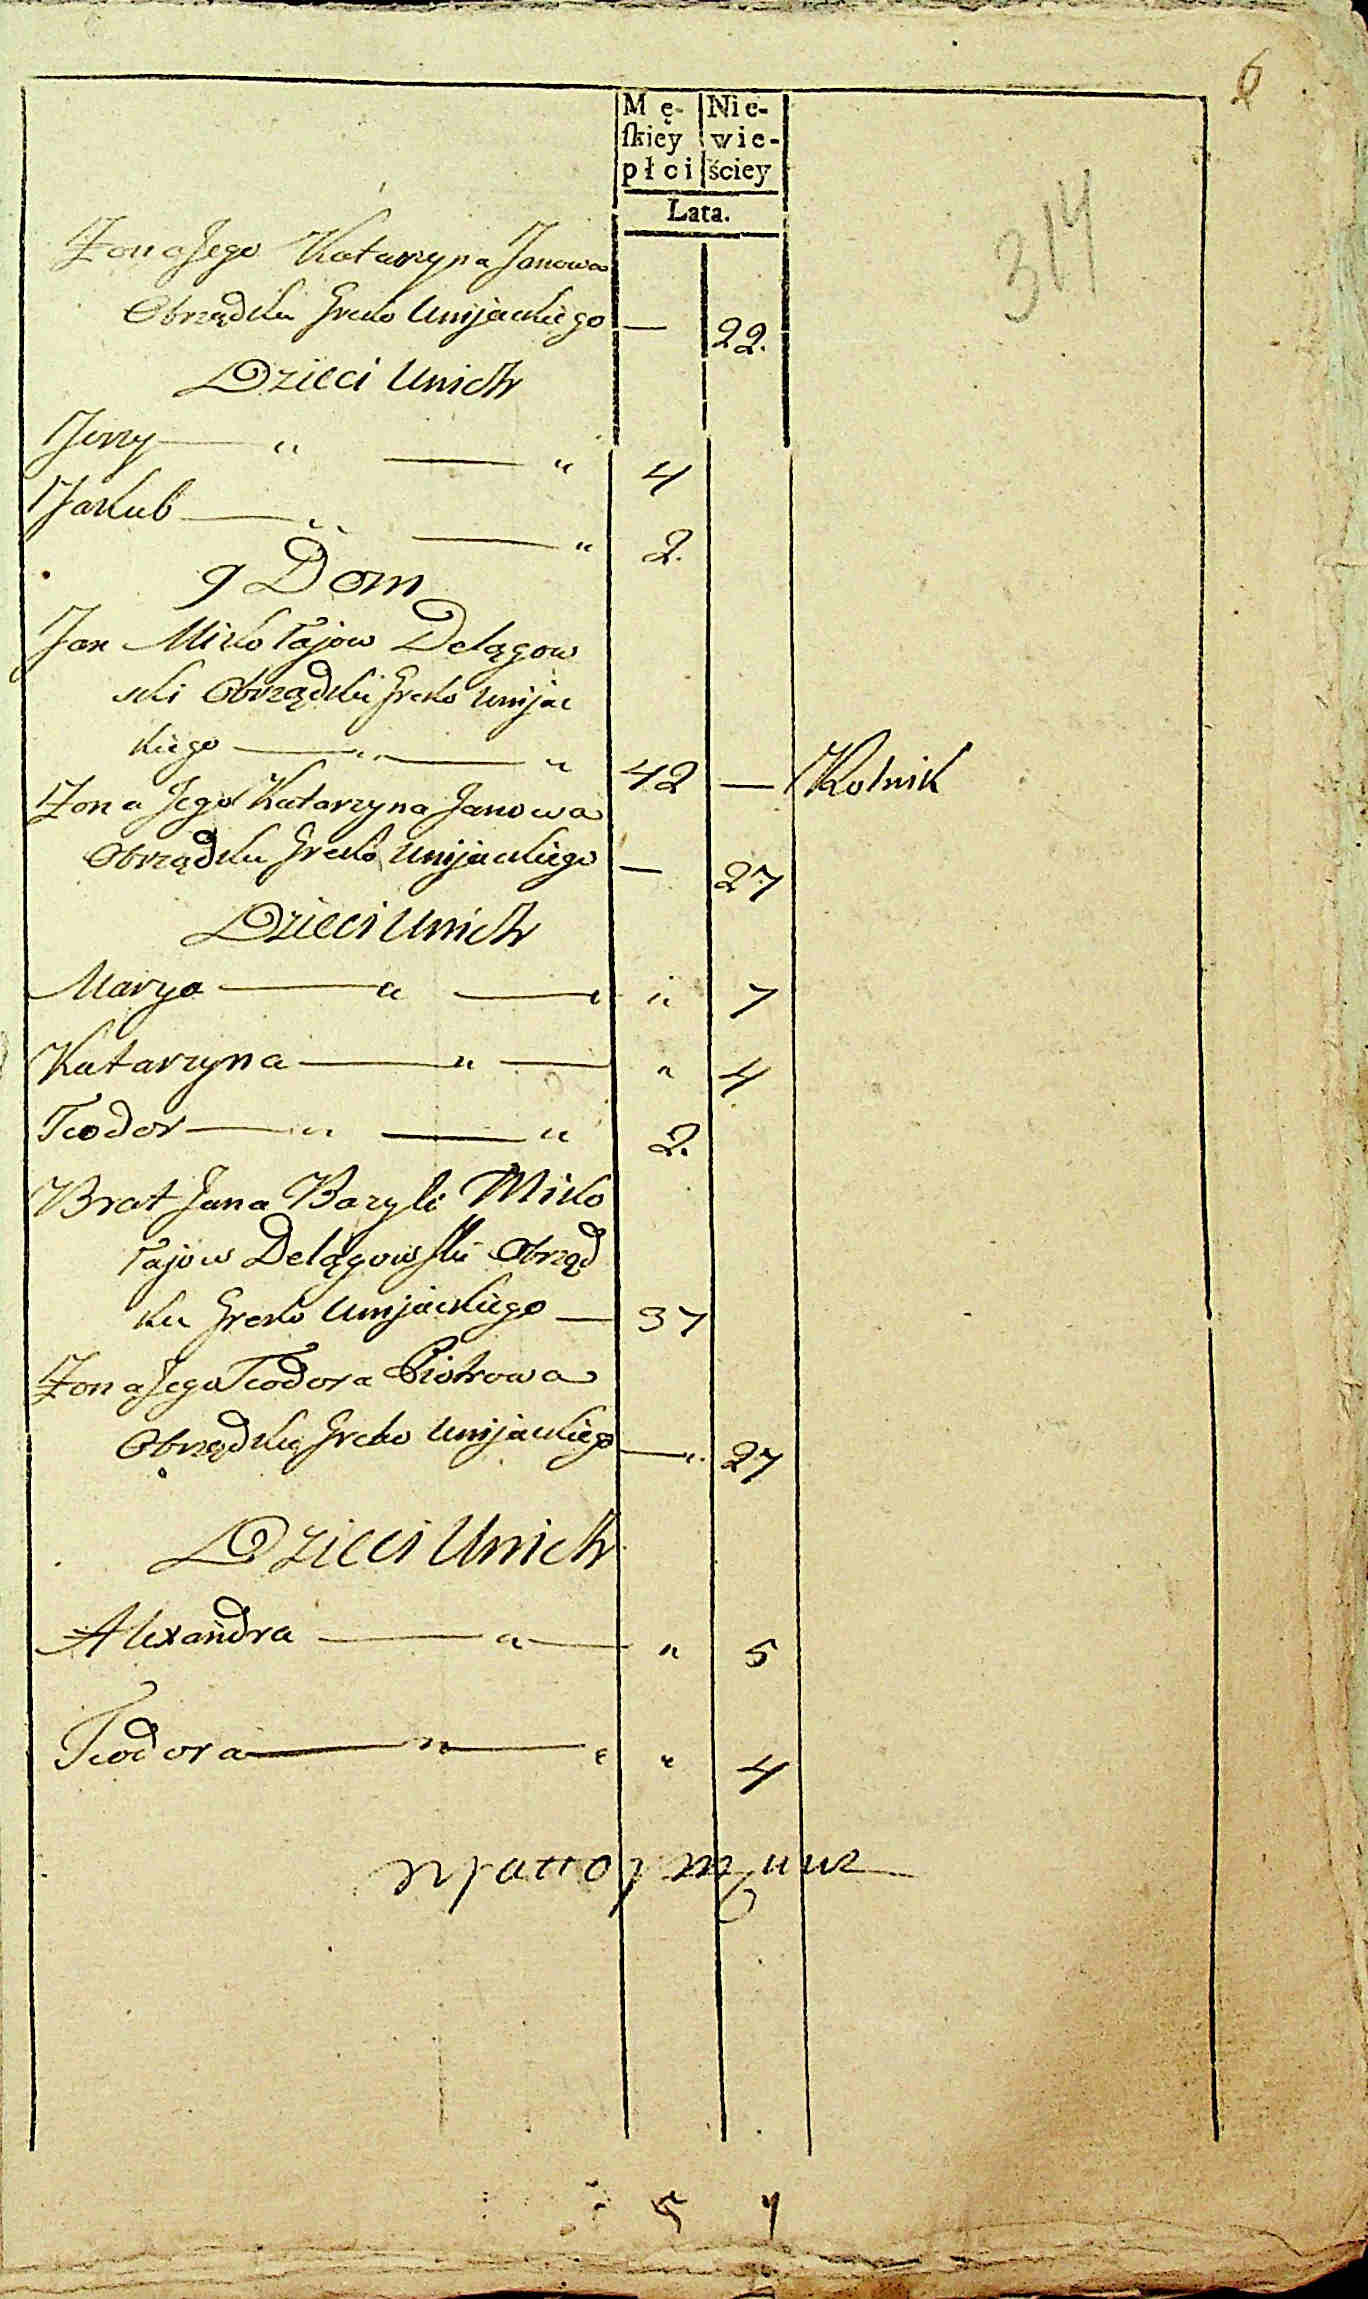 6
314
Mę- Nie-
skiey wie-
płci ściey
Lata.
Żona Jego Katarzyna Janowa
Obrządku Greko Unijackiego — 22.
Dzieci Unich
Jerzy — " — " 4
Jakub — " — " 2.
9 Dom
Jan Mikołajow Delągow
ski Obrządku Greko Unijac
kiego — " — " 42 — Rolnik
Żona Jego Katarzyna Janowa
Obrządku Greko Unijackiego — 27
Dzieci Unich
Marya — " — " " 7
Katarzyna — " — " 4
Teodor — " — " 2.
Brat Jana Bazyli Miko
łajow Delągowski Obrząd
ku Greko Unijackiego — 37
Żona Jego Teodora Piotrowa
Obrządku Greko Unijackiego — " 27
Dzieci Unich
Alexandra — " — " 5
Teodora — " — " " 4
5 7